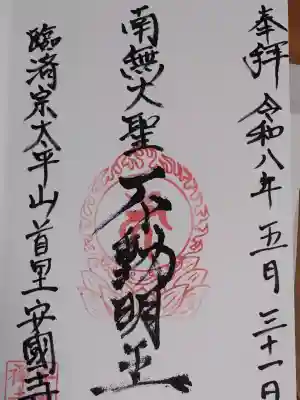 奉拝 令和八年 五月 三十一日
南無大聖 不動明王
臨済宗太平山首里安國寺